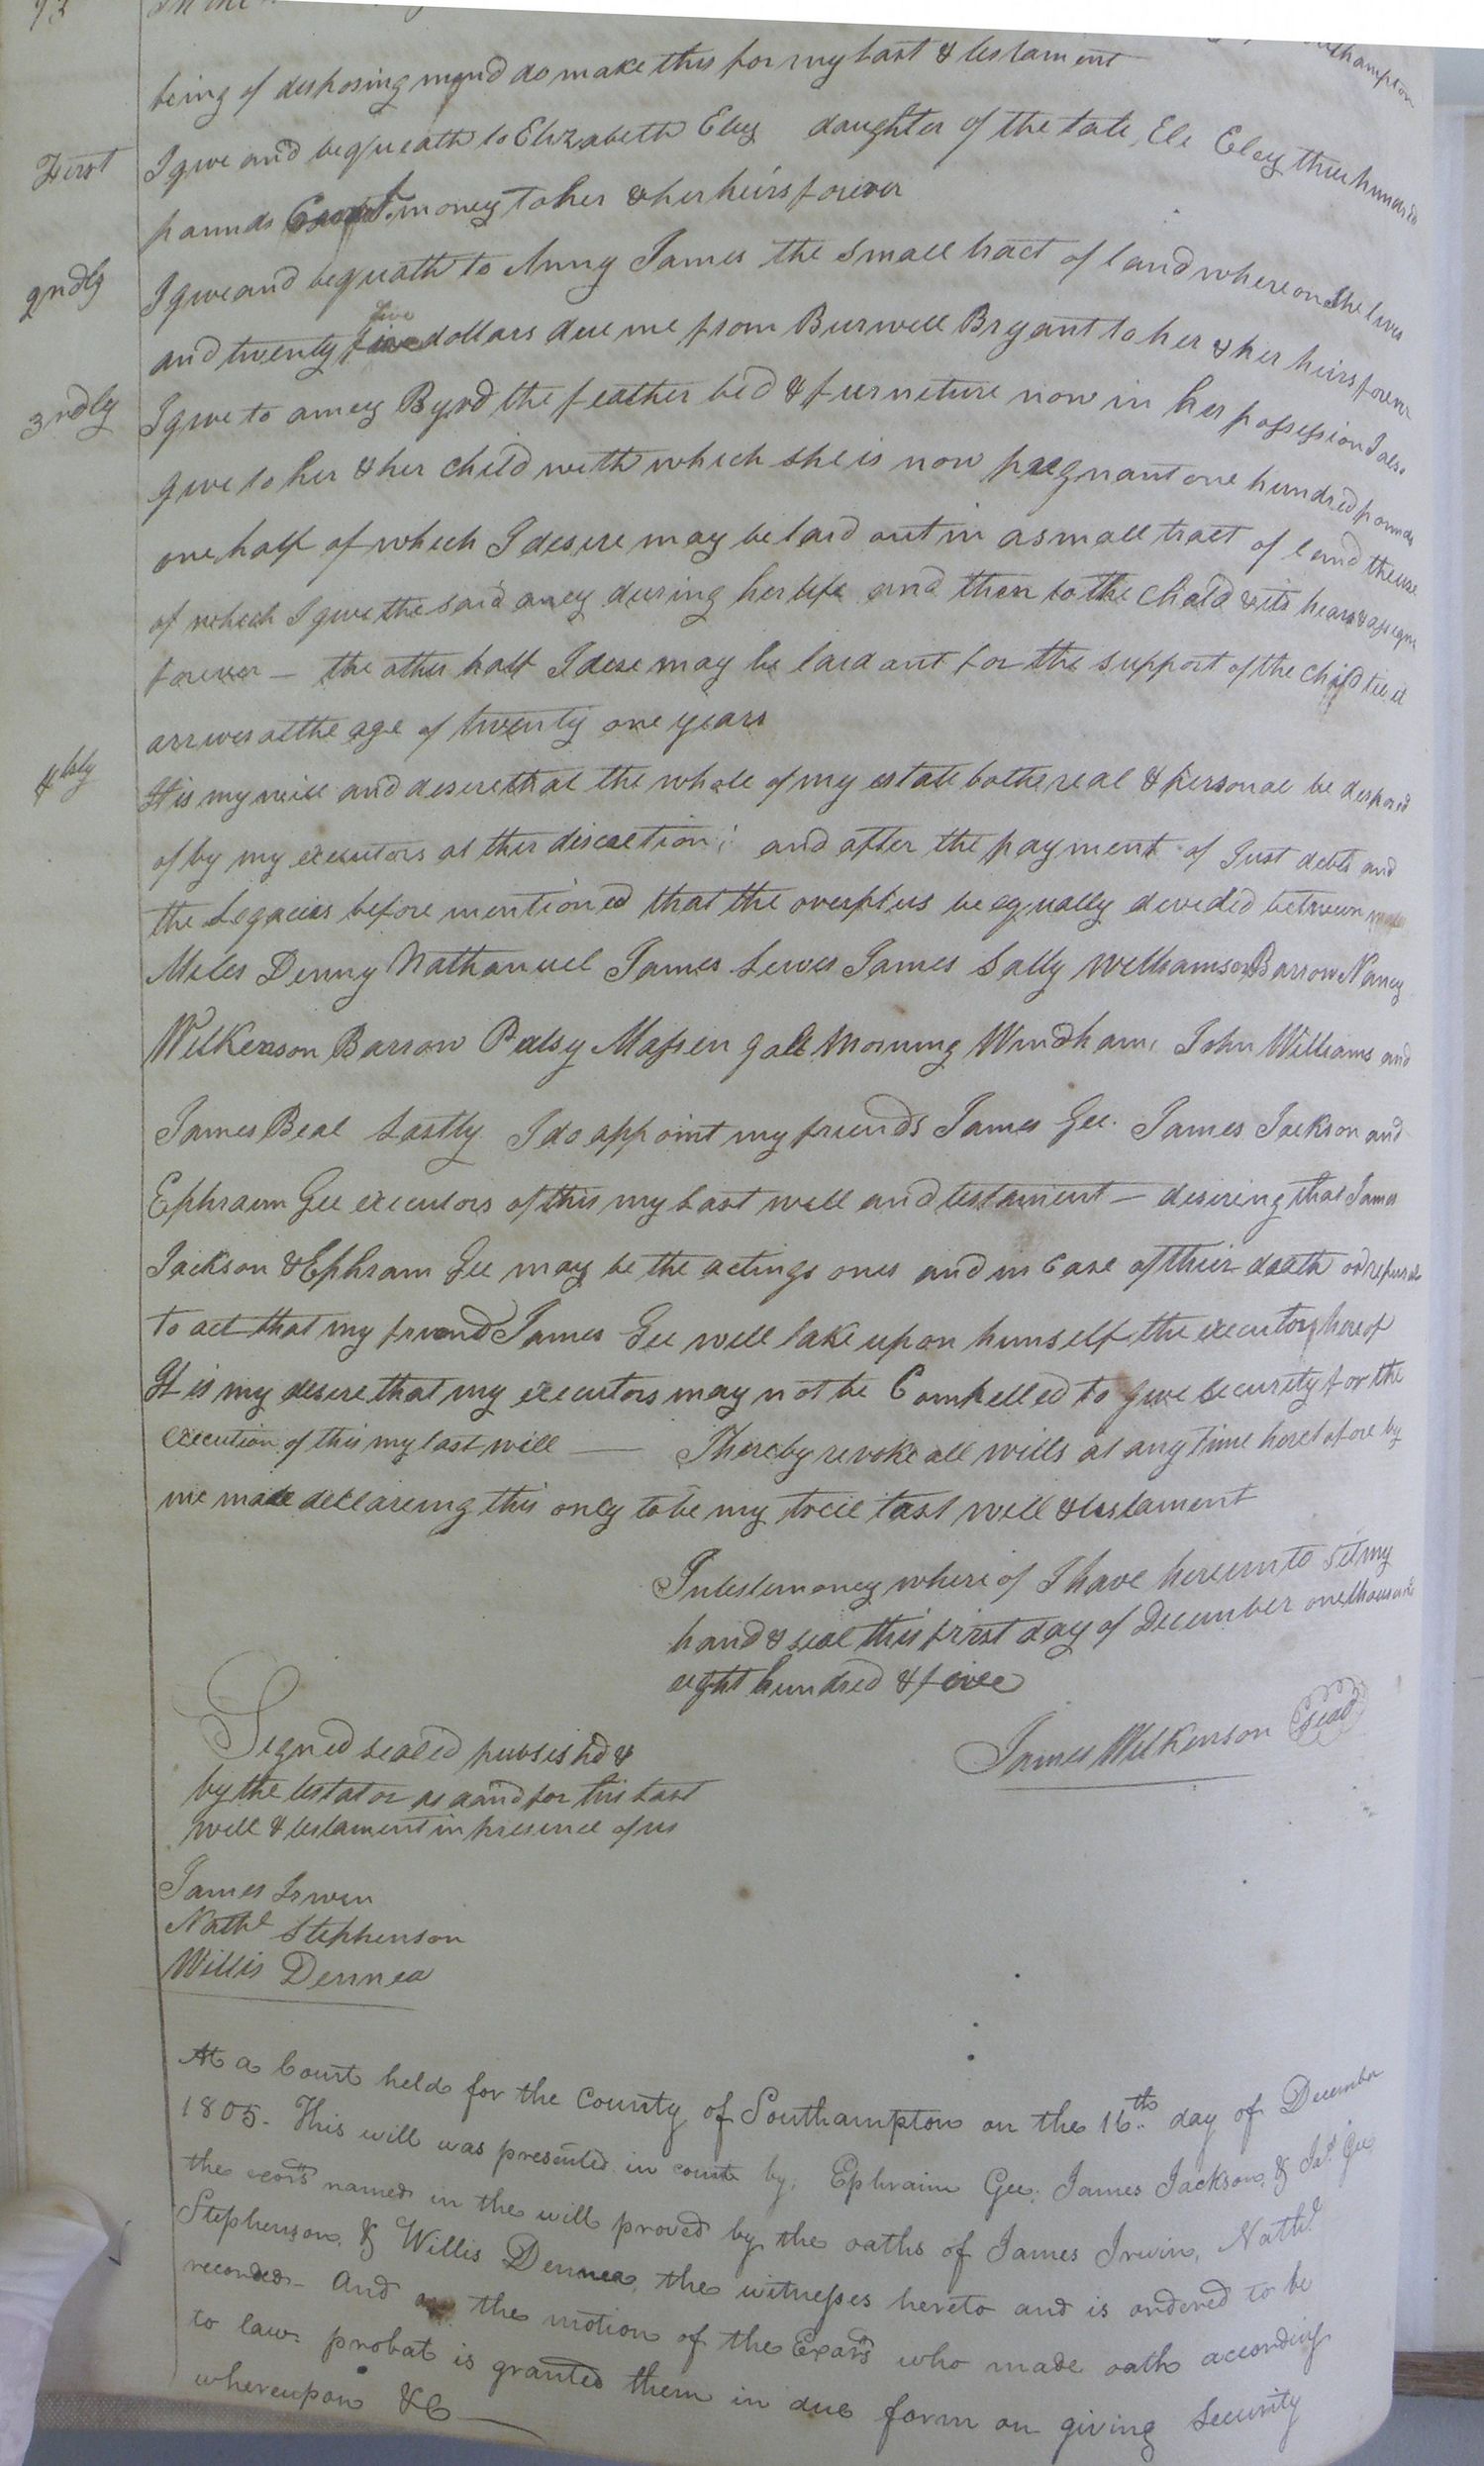 73
being of desposing mind do make this for my last & testament
First I give and bequeath to Elizabeth Eley daughter of the late Ele Eley three hundred
pounds Curt. money to her & her heirs forever
2ndly I give and bequeath to Anny James the small tract of land whereon she lives
and twenty five five dollars due me from Burwell Bryant to her & her heirs forever
3rdly I give to amey Byrd the feather bed & furneture now in her possession I also
give to her & her child with which she is now pregnant one hundred pounds
one half of which I desire may be laid out in a small tract of land the use
of which I give the said amey during her life and then to the child & its heirs & assigns
forever — the other half I desire may be laid out for the support of the child till it
arrives at the age of twenty one years
4thly It is my will and desire that the whole of my estate both real & personal be desposed
of by my executors at ther discretion; and after the payment of Just debts and
the Legacies before mentioned that the overplus be equally devided between
Miles Denny Nathanuel James Lewis James Sally Williamson Barrow Nancy
Wilkenson Barrow Patsy Massengale Morning Windham, John Williams and
James Beal Lastly I do appoint my friends James Gee. James Jackson and
Ephraim Gee executors of this my Last will and testament — desireing that James
Jackson & Ephram Gee may be the actings ones and in Case of their death or refusal
to act that my friend James Gee will take upon himself the executorshereof
It is my desire that my executors may not be Compelled to give security for the
execution of this my last will — I hereby revoke all wills at any time heretofore by
me made declareing this only to be my true last will & testament
In testemoney where of I have hereunto set my
hand & seal this first day of December one thousand
eight hundred & five
James Wilkenson Seal
Signed sealed publishd &
by the testator as aand for his Last
will & testament in presence of us
James Irwin
Nathl Stephenson
Willis Dennea
At a Court held for the County of Southampton on the 16th. day of December
1805. This will was presented in court by, Ephraim Gee, James Jackson, & Jas. Gee
the exors named in the will proved by the oaths of James Irwin, Nathl.
Stephenson, & Willis Dennea, the witnesses hereto and is ordered to be
recorded- And on the motion of the Exors who made oath according
to law. probat is granted them in due form on giving security
whereupon &C —